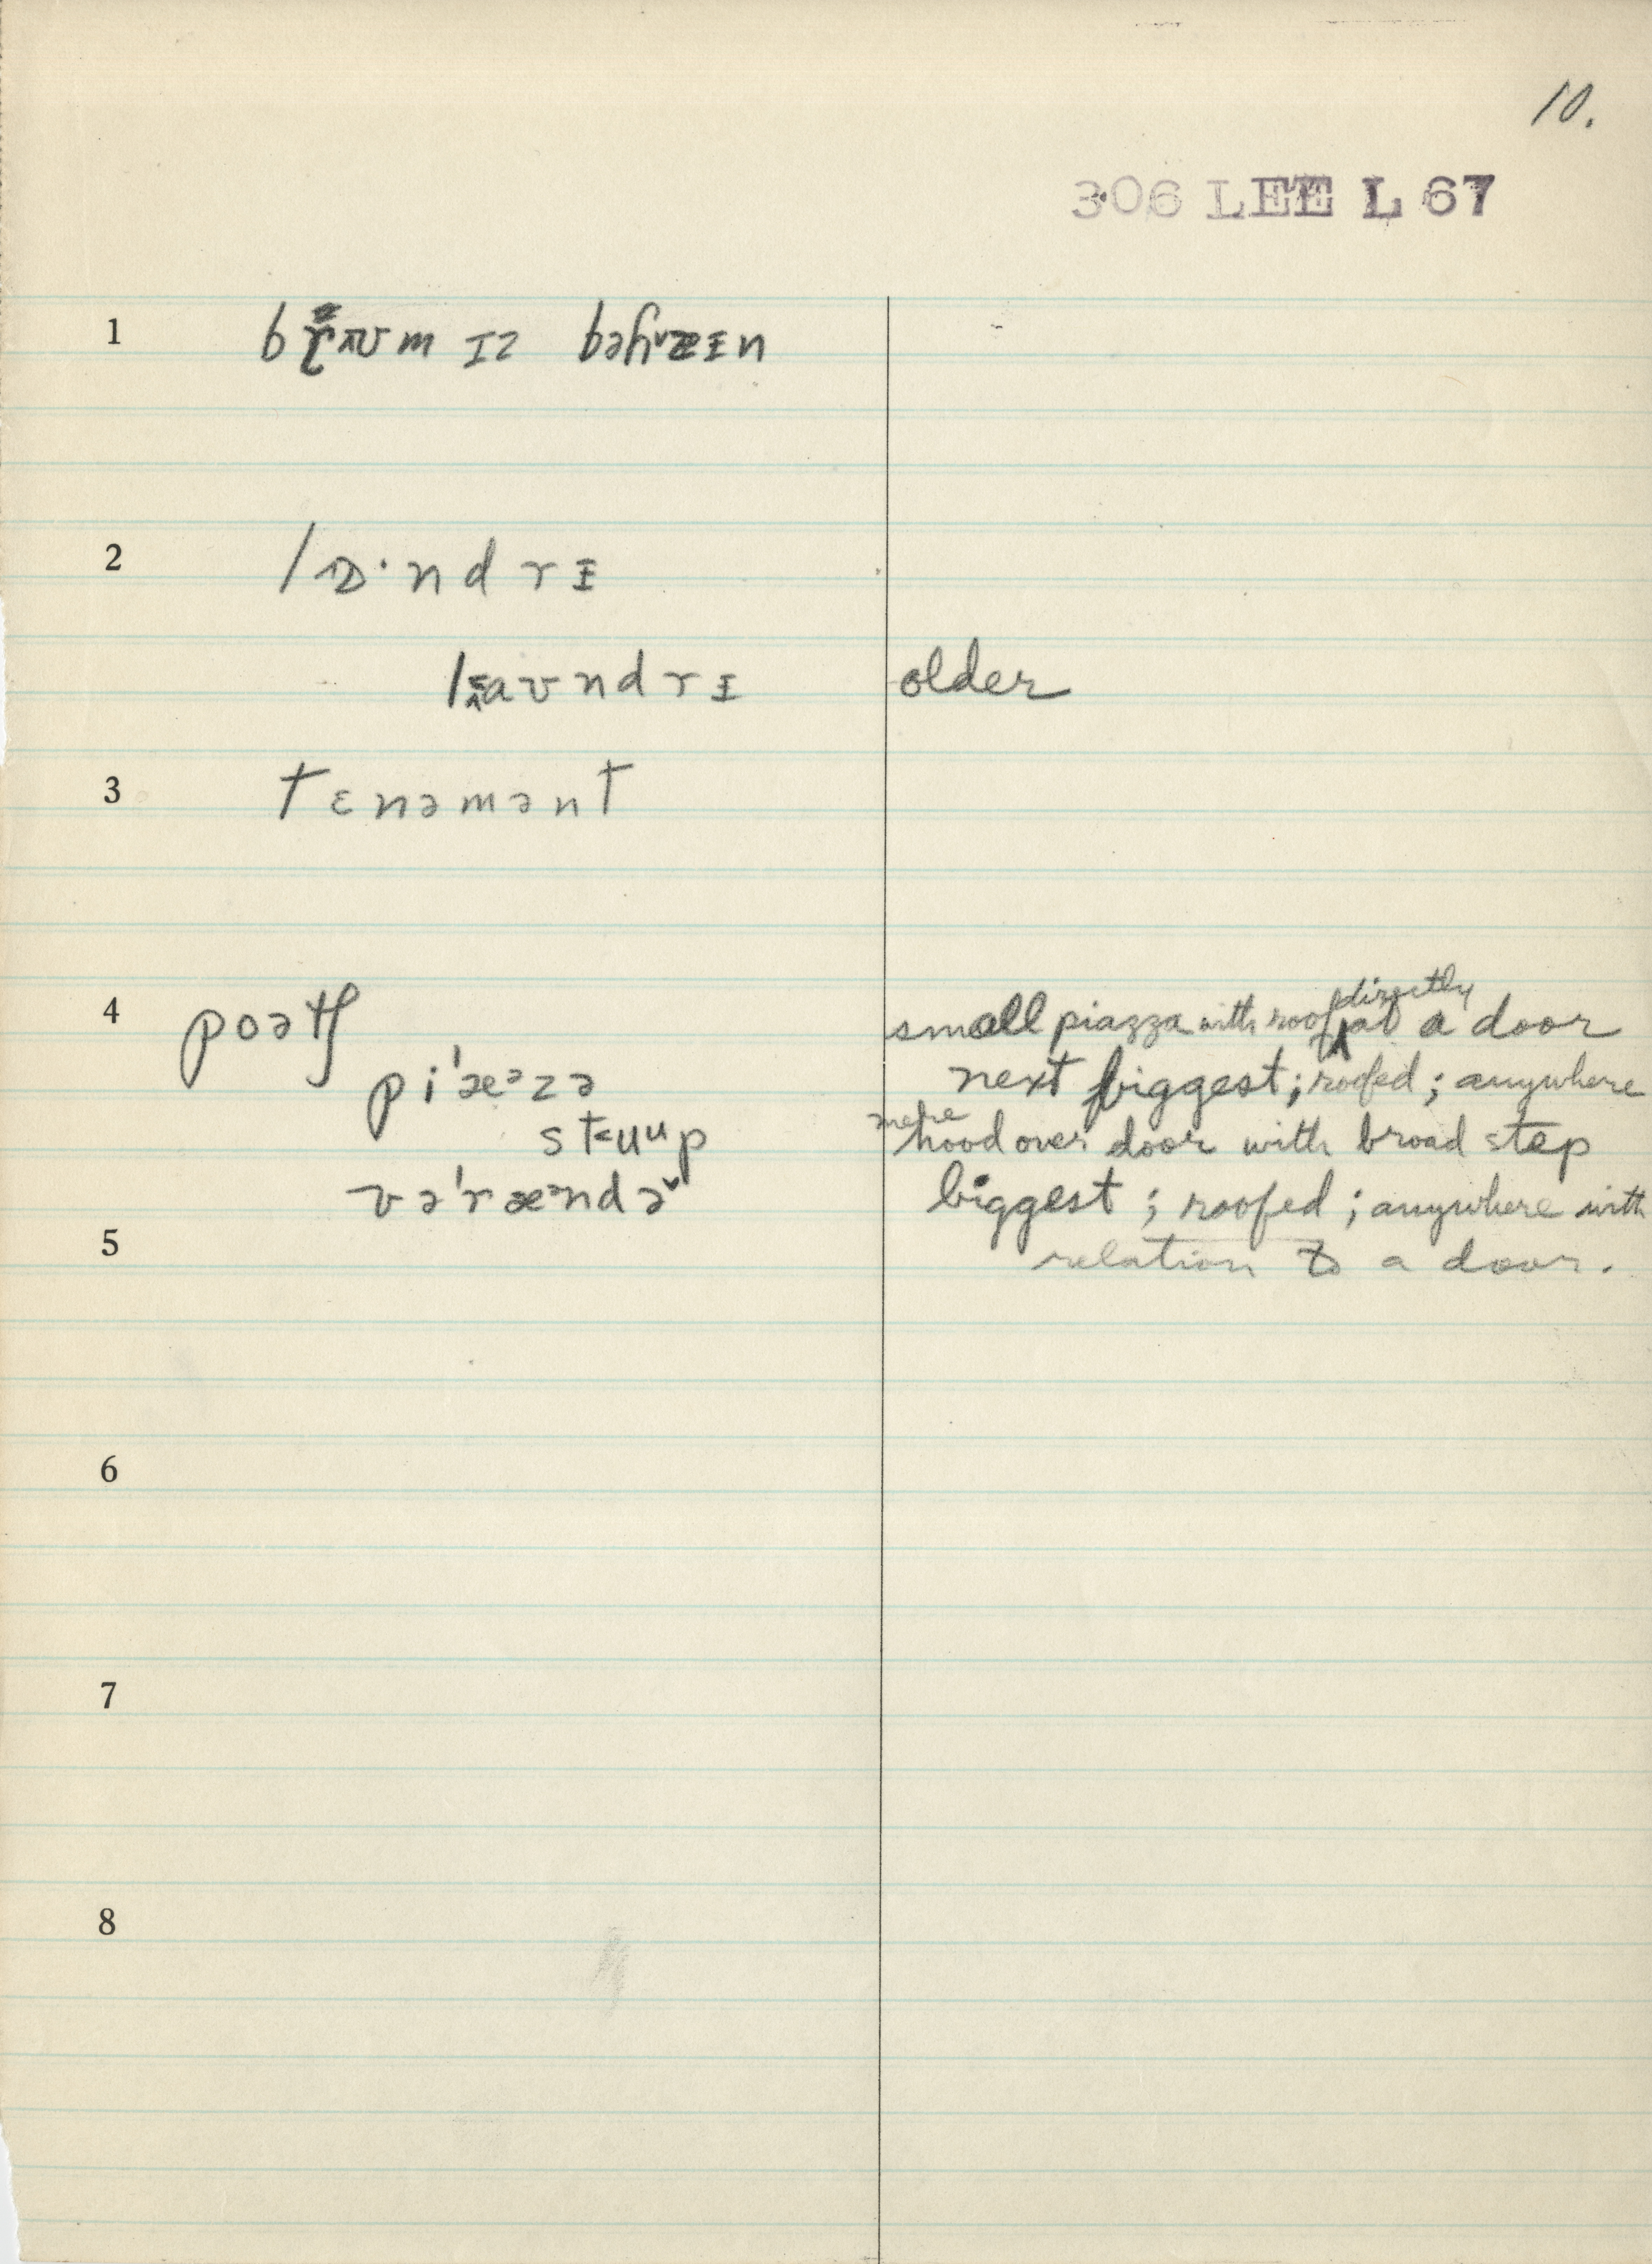 10.
306 LEE L 67
1 ɪz
2 lɒ·ndrɪ
laʊndrɪ older
3 tɛnəmənt
4 poətʃ small piazza with roof directly at a door
pi'æᵊzə next biggest; roofed; anywhere
st˂uᵘp mere hood over door with broad step
və'ræᵊndə˅ biggest; roofed; anywhere with
5 relation to a door.
6
7
8